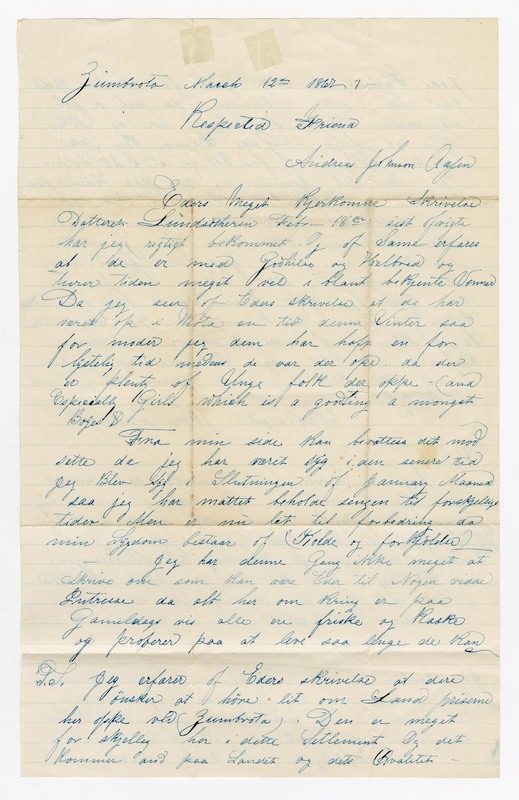 Zumbrota March 12th 1867
Respected Friend
Andreas Johnson Aasen
Eders Meget Kjerkomne Skrivelse
Datteret Febr 18de sist
har jeg rigtigt bekommet Og af Same erfares
at de er med Godhilse og Velbred og
turer tiden meget vel i blant bekjente Venner
Da jeg seer af Eders skrivelse at de har
været op i en tid denne Vinter saa
formoder jeg dem har haft en for
lystelig tid medens de var der ope. da der
er plenty of Unge folk der oppe - (and
Especially Girls which is a good ting a mongst
Boyes)
Fra min side kan berettes det mod
satte da jeg har været syg i den senere tid
jeg Blev syg i Slutningen af January Maaned
saa jeg har mattet beholde sengen til forskjellige
tider. Men er nu let til forbedring da
min Sygdom bestaar of (Kolde og forkjølelse)
Jeg har denne Gang ikke meget at
skrive om som kan være Eder til Nogen vidre
Intresse da alt her om kring er paa
Gameldags vis alle ere friske og Raske
og prøberer paa at leve saa lenge de kan
P.S. Jeg erfarer of Eders skrivelse at dere
ønsker at høre lit om Land prisene
her oppe ved (Zumbrota). Den er meget
forskjellig her i dette Settlement Og det
kommer and paa Landet og dets Qvalitet -